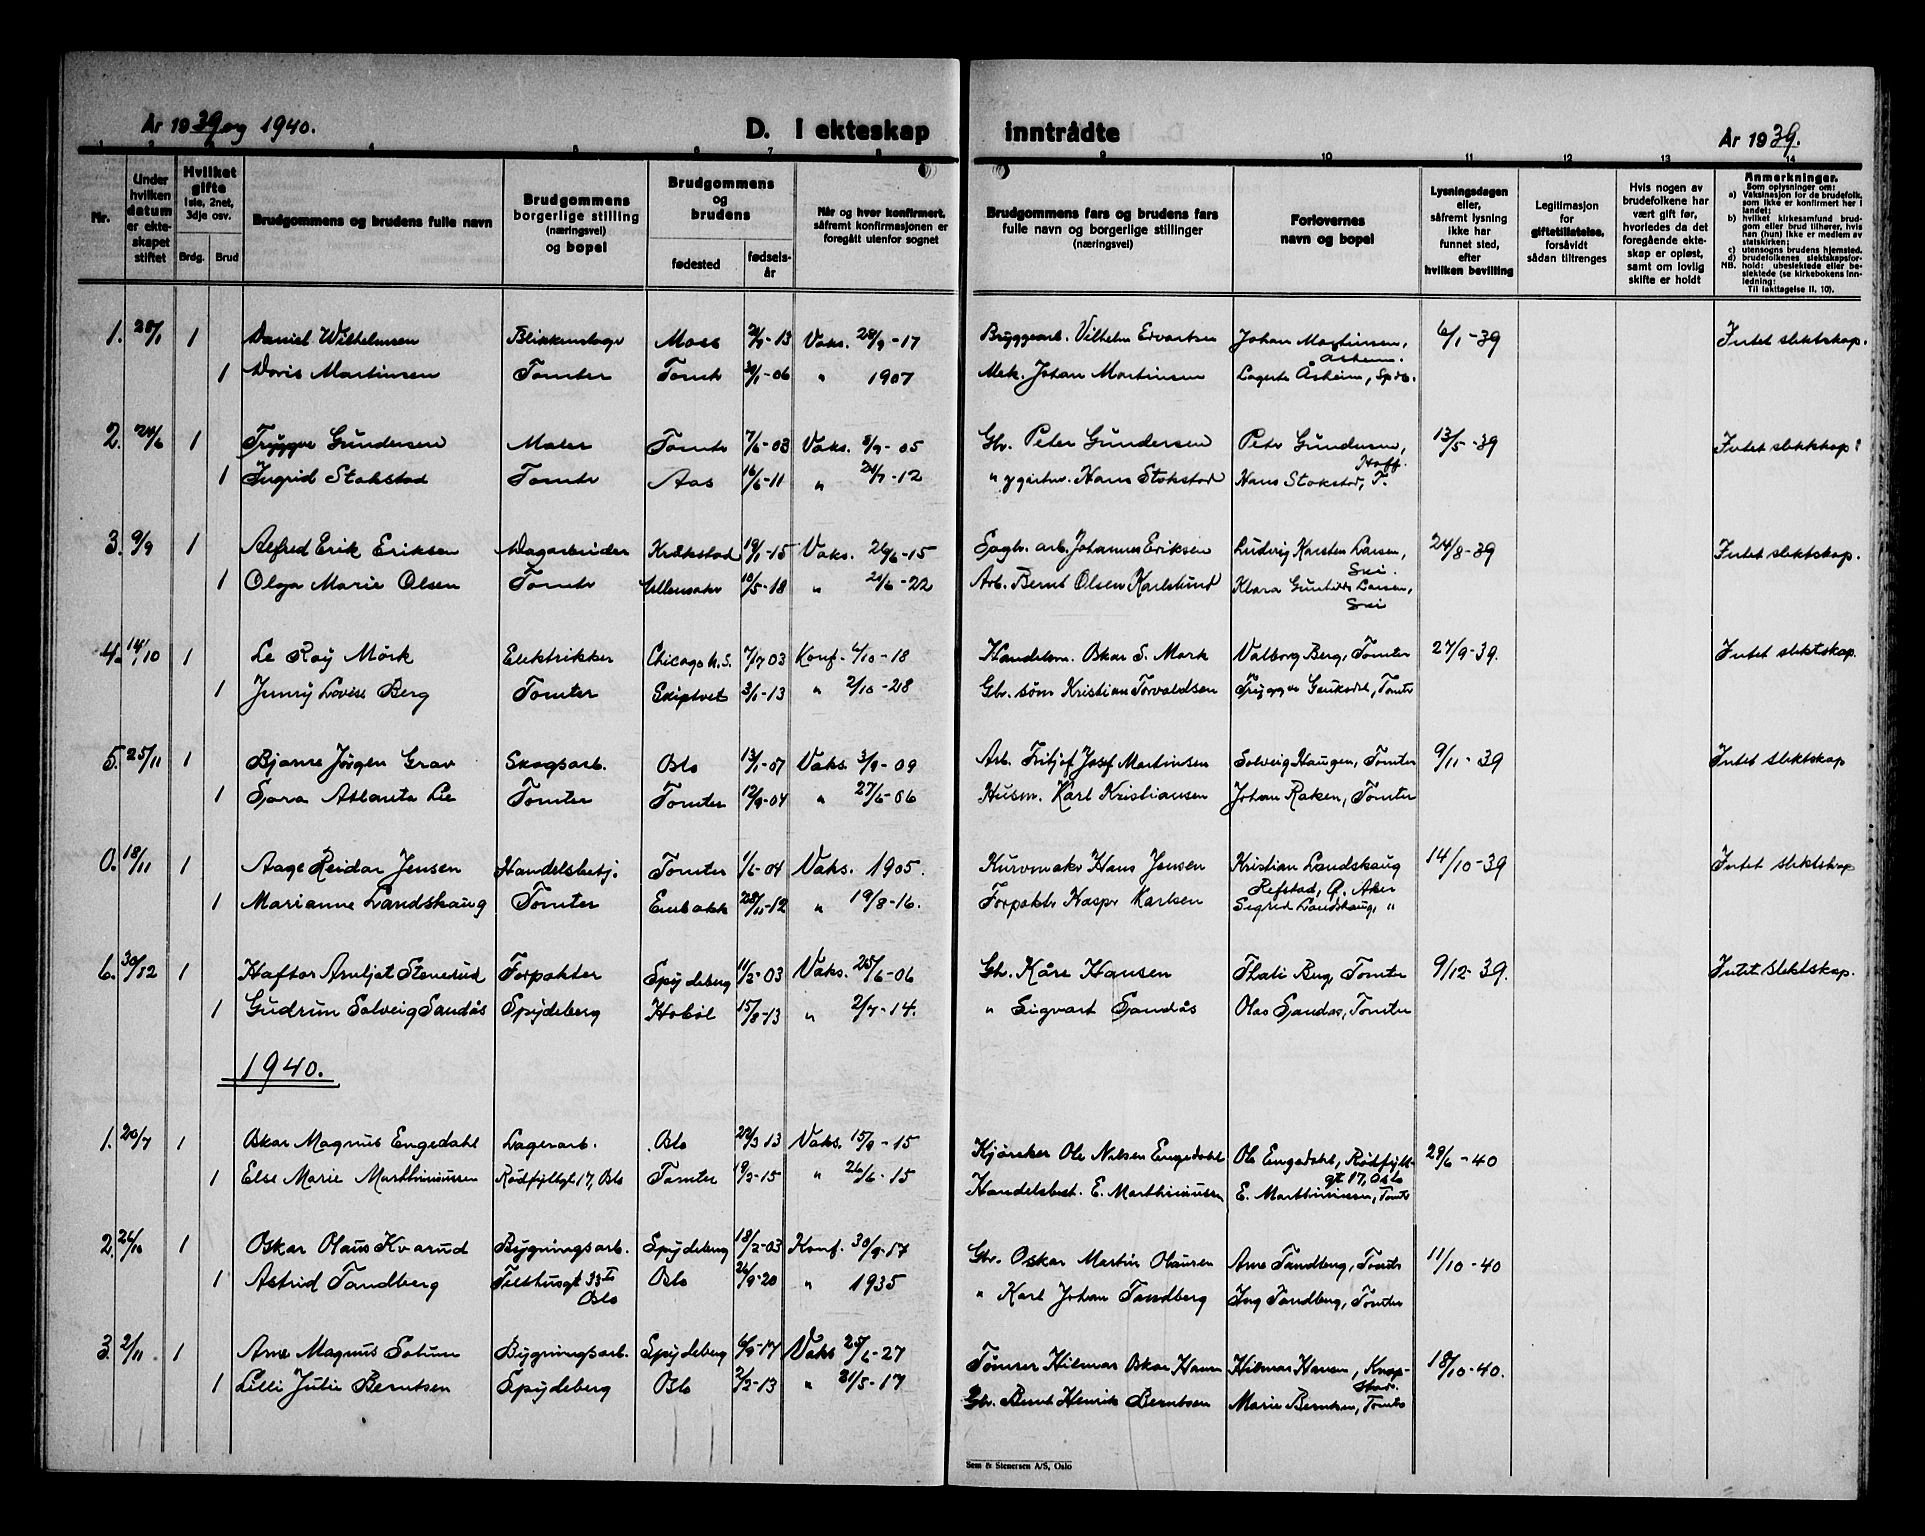 År 1939 og 1940.
D. I ekteskap inntrådte
År 1939.
1 2 4 5 6 7 8 9 10 11 12 13 14
Nr.
Under hvilken datum er ekteskapet stiftet
Hvilket gifte 1ste, 2net, 3dje osv.
Brdg. Brud
Brudgommens og brudens fulle navn
Brudgommens borgerlige stilling (næringsvei) og bopel
Brudgommens og brudens
fødested fødselsår
Når og hvor konfirmert, såfremt konfirmasjonen er foregått utenfor sognet
Brudgommens fars og brudens fars fulle navn og borgerlige stillinger (næringsvei)
Forlovernes navn og bopel
Lysningsdagen eller, såfremt lysning ikke har funnet sted, efter hvilken bevilling
Legitimasjon for giftetillatelse, forsåvidt sådan tiltrenges
Hvis nogen av brudefolkene har vært gift før, hvorledes da det foregående ekteskap er opløst, samt om lovlig skifte er holdt
Anmerkninger.
Som oplysninger om:
a) Vaksinasjon for de brudefolk, som ikke er konfirmert her i landet;
b) hvilket kirkesamfund brudgom eller brud tilhører, hvis han (hun) ikke er medlem av statskirken;
c) utensogns brudens hjemsted.
d) brudefolkenes slektskapsforhold: ubeslektede eller beslektede (se kirkebokens innledning:
NB. Til iakttagelse II. 10).
1. 28/1 1 Daniel Wilhelmsen Blikkenslager Moss 13 Vaks. 28/9-17 Bryggearb. Vilhelm Edvartsen Johan Martinsen, Åsheim. 6/1-39 Intet slektskap.
1 Doris Martinsen Tomter Tomt 30/1-06 " 1907 Mek. Johan Martinsen Åsheim,
2. 24/6 1 Trygve Gundersen Maler Tomter 7/6-03 Vaks. 8/9-05 Gbr. Peter Gundersen Peter Gundersen, 13/5-39 Intet slektskap
1 Ingrid Stokstad Tomter Aas 16/6-11 " 21/7-12 " Hans Stokstad Hans Stokstad, T.
3. 9/9 1 Alfred Erik Eriksen Kråkstad 19/1-15 Vaks. 26/6-15 Sagbr. arb. Johannes Eriksen Ludvig Karsten Larsen, Ski. 24/8-39 Intet slektskap.
1 Olga Marie Olsen Tomter Ullensaker 10/5-18 " 21/6-22 Arb. Bernt Olsen Karlslund Klara Gunhilda Larsen, Ski
4. 14/10 1 Le Roy Mörk Elektrikker Chicago U.S. 7/7 03 Konf. 4/10-18 Handelsm. Oskar S. Mörk Valborg Berg, Tomter 27/9-39. Intet slektskap.
1 Jenny Lovise Berg Tomter Skiptvet 3/1-13 " 2/10-28 Gbr. søn Kristian Torvaldsen Trygve Tomter
5. 25/11 1 Bjarne Jörgen Grav Skogsarb. Oslo 13/1-07 Vaks. 3/9-09 Arb. Fritjof Josef Martinsen Solveig Haugen, Tomter 9/11-39 Intet slektskap
1 Sara Atlanta Lie Tomter Tomter 12/9-04 " 27/6-06 Husm. Karl Kristiansen Johan Raken, Tomter
0. 18/11 1 Aage Reidar Jensen Handelsbestj. Tomter 1/6-04 Vaks. 1905. Kurvmaker Hans Jensen Kristian Landskaug 14/10-39 Intet slektskap
Refstad, Ø. Aker
1 Marianne Landskaug Tomter Enebakk 28/11-12 " 19/8-16. Forpakter Kasper Karlsen Sigrid Landskaug, "
6. 30/12 1 Haftor Arnljot Stenerud Forpakter Spydeberg 11/2-03 Vaks. 25/6-06 Gbr. Kåre Hansen Thali Berg, Tomter 9/12-39. Intet slektskap.
1 Gudrun Solveig Sandås Spydeberg Hobøl 15/8-13 " 2/7-14. " Sigvart Sandås Olav Sandås, Tomter
1940.
1. 20/7 1 Oskar Magnus Engedahl Lagerarb. Oslo 29/3 13 Vaks. 15/9-15 Kjørsker Ole Nilsen Engedahl Ole Engedahl, Rødfyll- 29/6-40
gt 17, Oslo
1 Else Marie Marthiniussen Rødfyllgt 17, Oslo Tomter 19/2-15 " 26/6-15 Handelsbest. E. Marthiniussen E. Marthiniussen, Tomter
2. 26/10 1 Oskar Olaus Kvarud Bygningsarb. Spydeberg 18/2-03 Konf. 30/9-17 Gbr. Oskar Martin Olaussen Arne Tandberg, Tomter 11/10-40
1 Astrid Tandberg Tilthusgt 33 I Oslo Oslo 26/9-20 " 1935 " Karl Johan Tandberg Ing Tandberg, Tomter
3. 2/11 1 Arne Magnus Solum Bygningsarb. Spydeberg 6/9-17 Vaks 25/6-27 Tømmer Hilmar Oskar Hansen Hilmar Hansen, Knapstad. 18/10-40.
1 Lilli Julie Berntsen Spydeberg Oslo 2/2-13 " 21/5-17 Gbr. Bernt Henrik Berntsen Marie Berntsen, Tomter
Sem & Stenersen A/S, Oslo